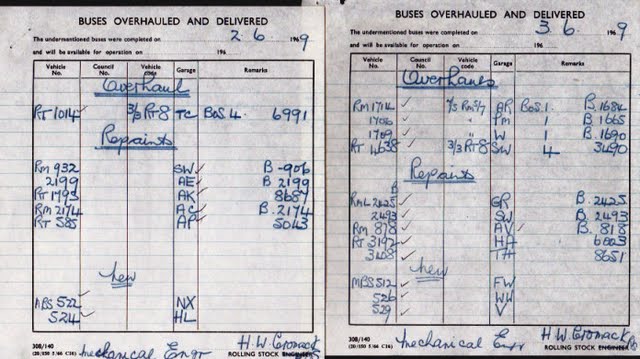 BUSES OVERHAULED AND DELIVERED
The undermentioned buses were completed on 2 6 1969
and will be available for operation on 196
Vehicle No. Council No. Vehicle code Garage Remarks
Overhaul
RT 1014 ✓ 3/3 RT8 TC BOS. 4. 6991
Repaints
RM 932 SW ✓ B - 906
2199 AE ✓ B 2199
RT 1793 AK ✓ 8687
RM 2174 AC ✓ B. 2174
RT 585 AP ✓ 5043
New
MBS 522 ✓ NX
524 ✓ HL
308/140
(20/150 5/66 C16)
Mechanical Engr
H.W. Cromack
ROLLING STOCK ENGINEER
BUSES OVERHAULED AND DELIVERED
The undermentioned buses were completed on 3 6 1969
and will be available for operation on 196
Vehicle No. Council No. Vehicle code Garage Remarks
Overhauls
RM 1714 ✓ AR BOS. 1. B. 1684
1706 ✓ " PM 1 B. 1665
1709 ✓ " W 1 B. 1690
RT 4638 ✓ 3/3 RT8 SW 4 3490
Repaints
RML 2425 ✓ GR B. 2425
2493 ✓ SW B. 2493
RM 878 ✓ AV ✓ B. 818
RT 3197 ✓ HA 6003
3408 ✓ TH 8651
New
MBS 512 ✓ FW
526 ✓ WW
529 ✓ V
308/140
(20/150 5/66 C16)
Mechanical Engr
H.W. Cromack
ROLLING STOCK ENGINEER